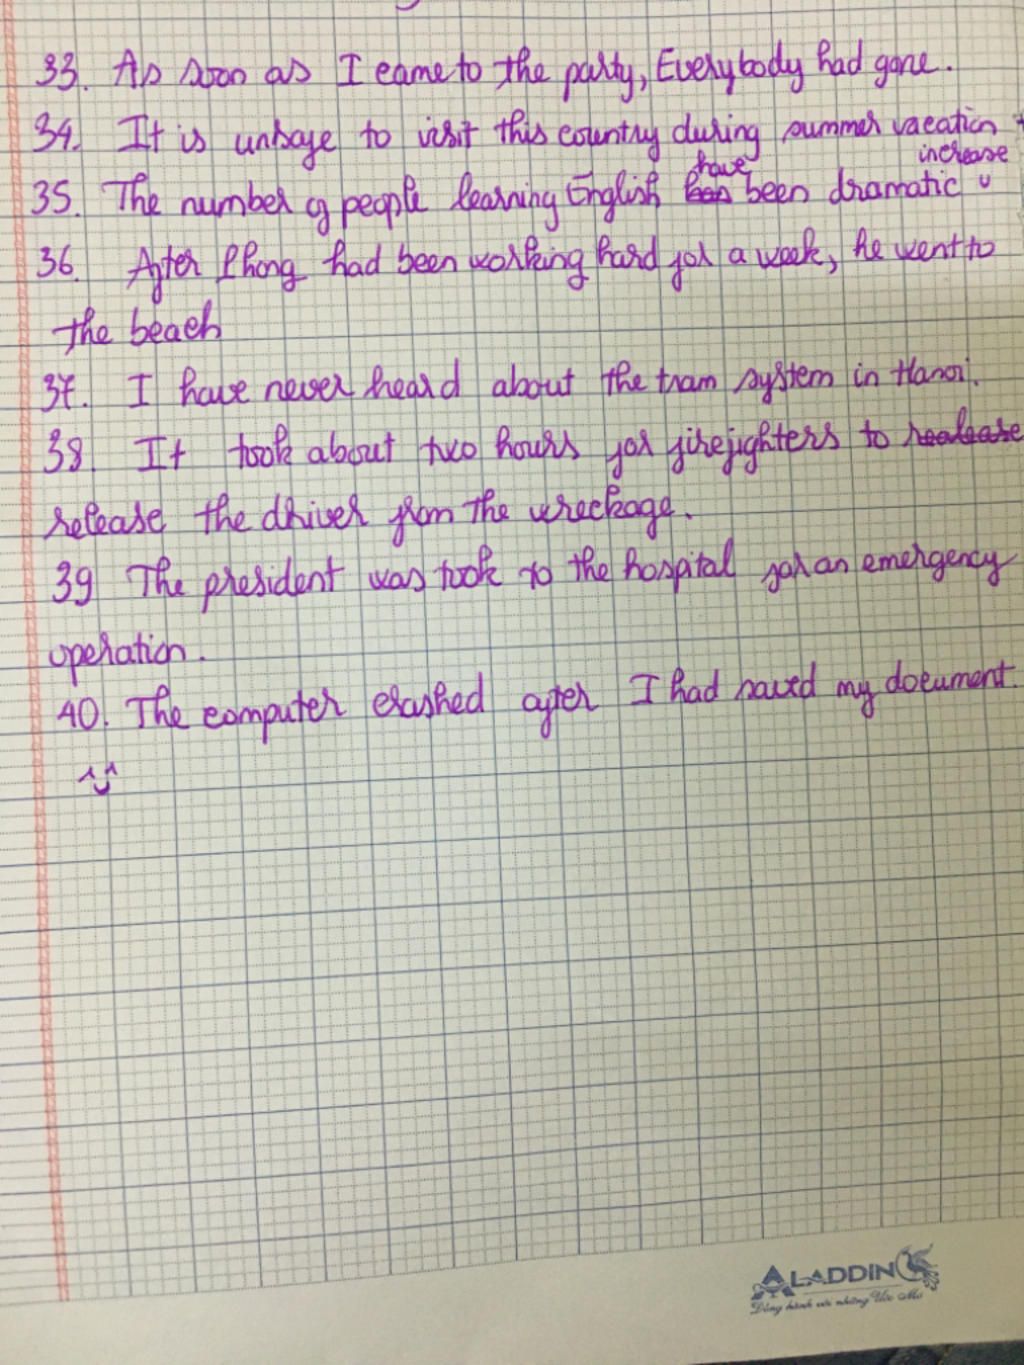 33. As soon as I came to the party, Everybody had gone.
34. It is unsafe to visit this country during summer vacation
increase
have
35. The number of people learning English has been dramatic
36. After Phong had been working hard for a week, he went to
the beach
37. I have never heard about the tram system in Hanoi.
38. It took about two hours for firefighters to realease
release the driver from the wreckage.
39 The president was took to the hospital for an emergency
operation.
40. The computer crashed after I had saved my document.
ALADDIN
Đồng hành với những Ước Mơ